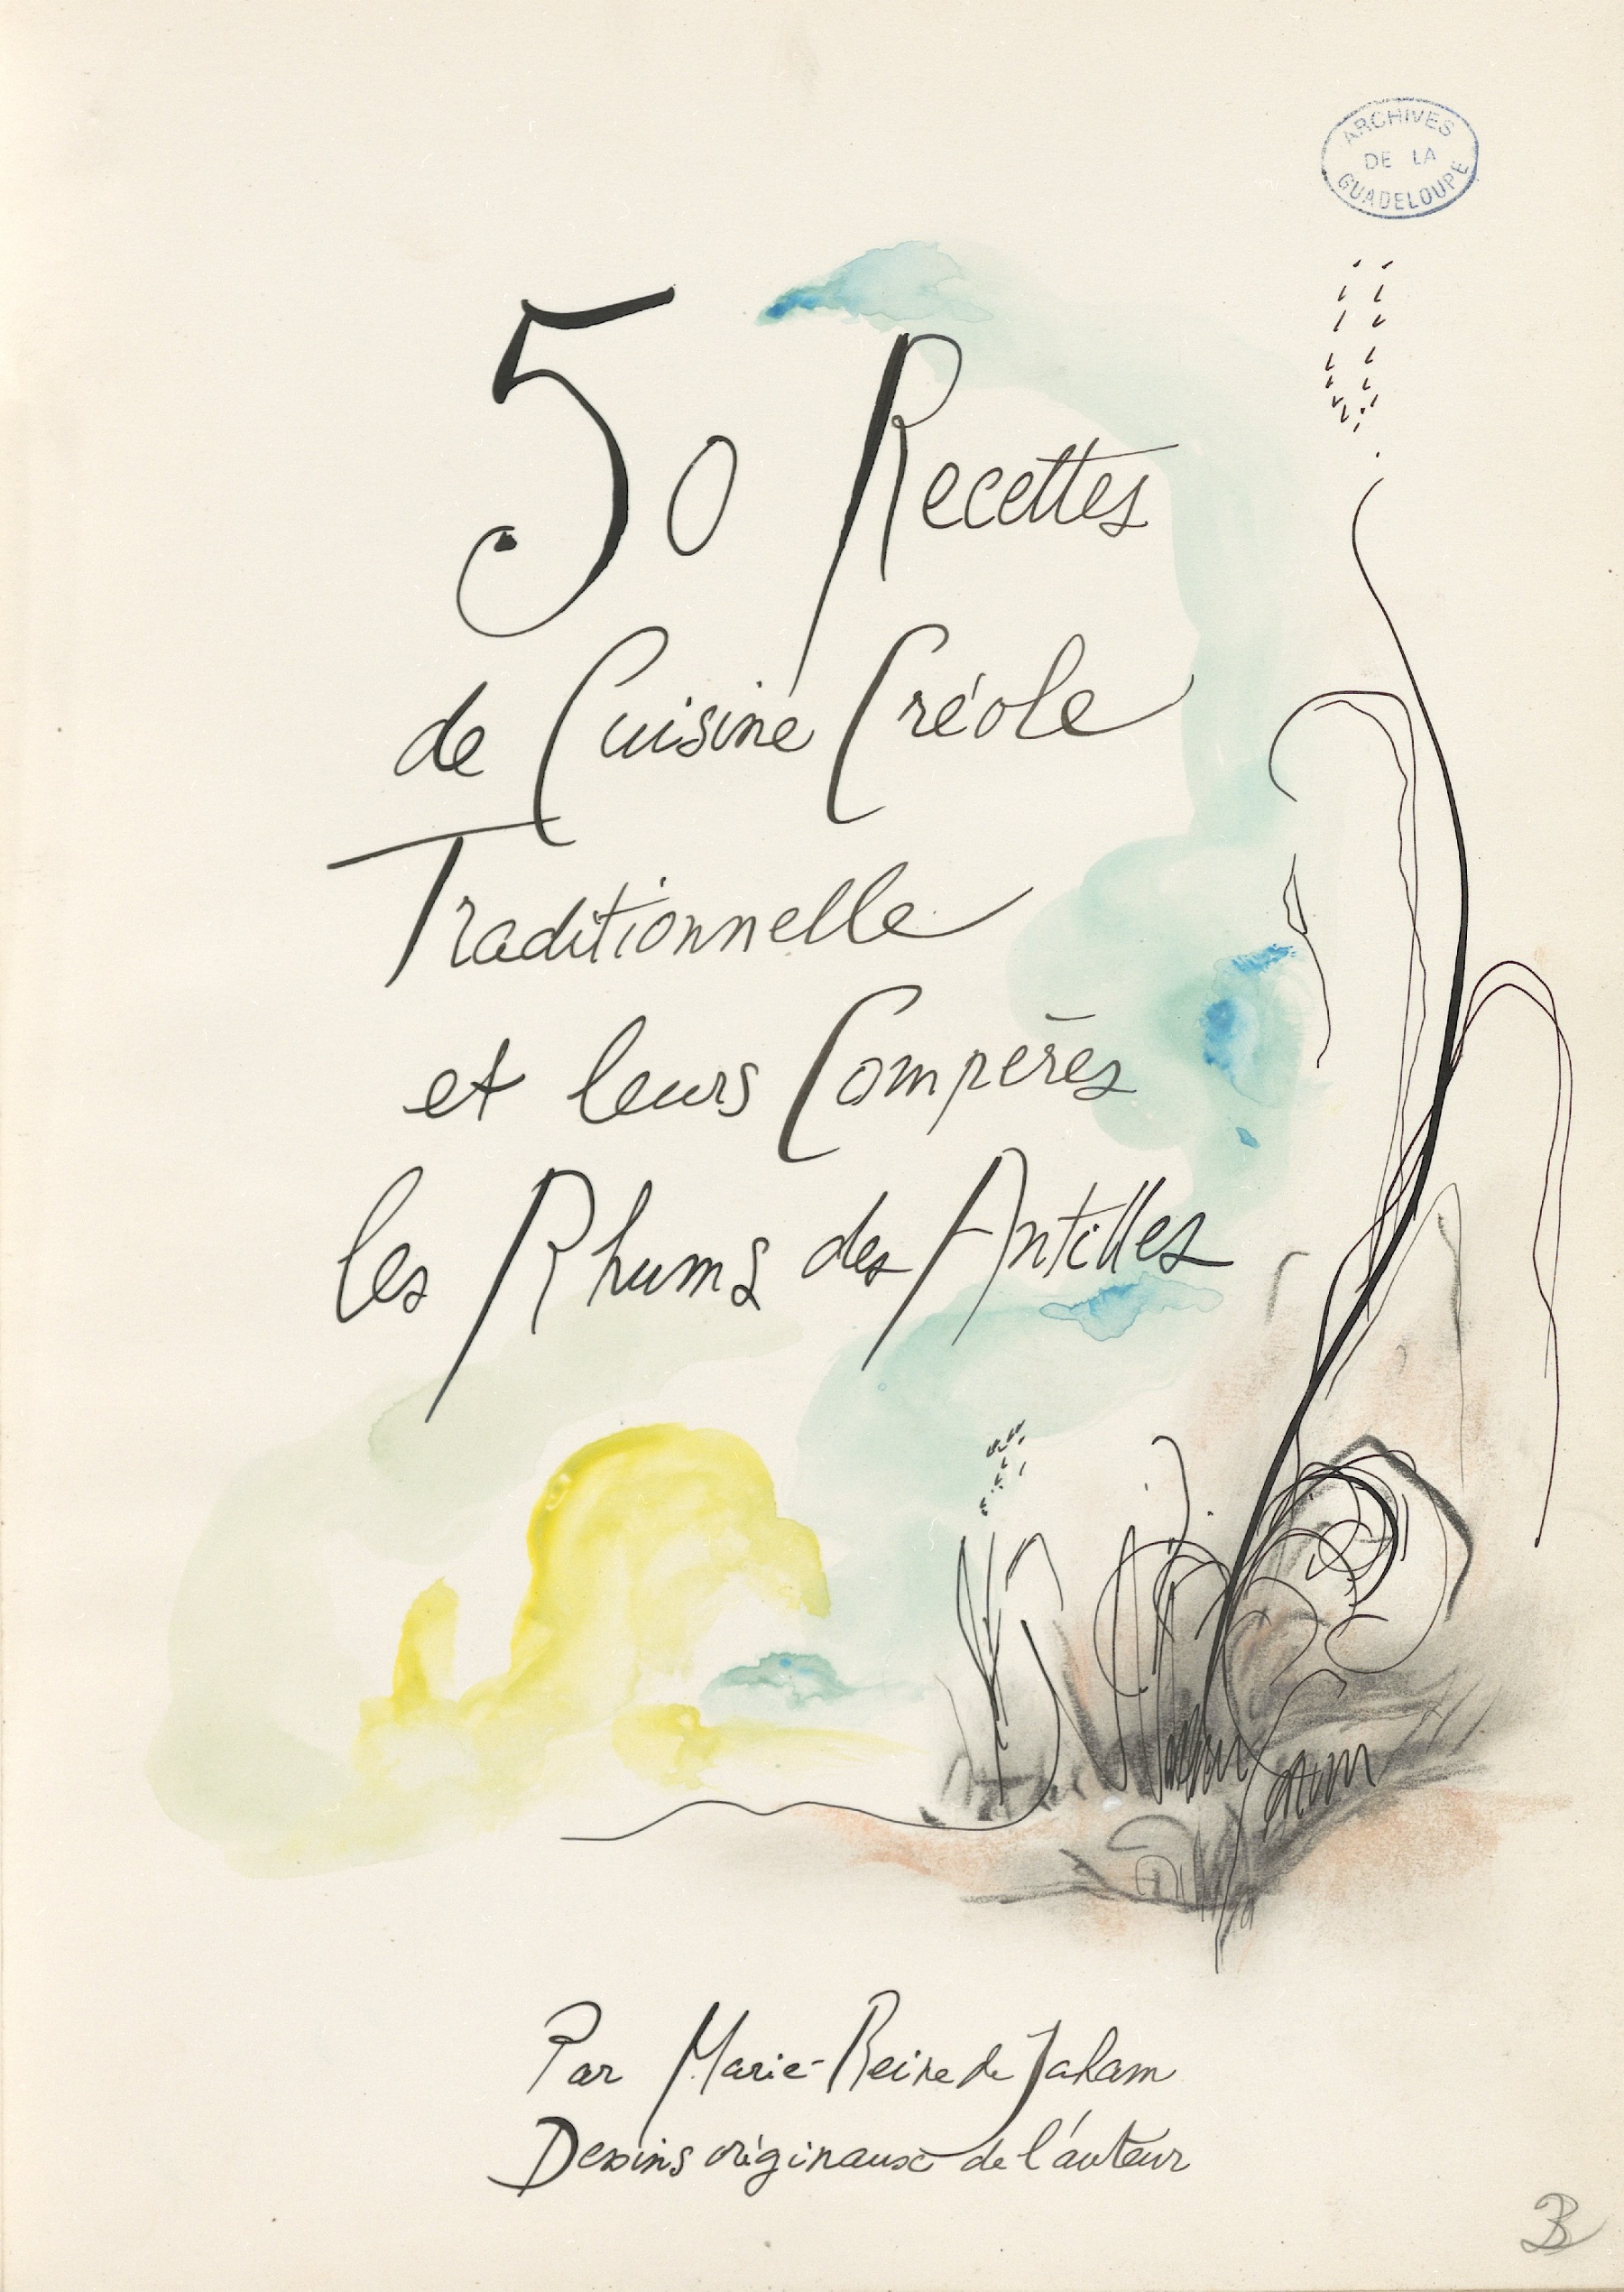 ARCHIVES
DE LA
GUADELOUPE
50 Recettes
de Cuisine Créole
Traditionnelle
et leurs Compères
les Rhums des Antilles
Par Marie-Reine de Jaham
Dessins originaux de l'auteur